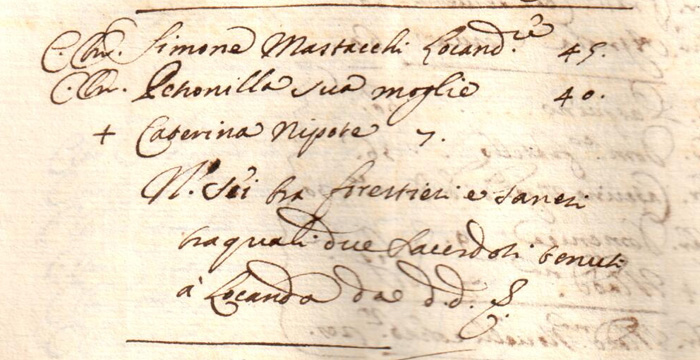 C. Chr. Simone Mastacchi Locand.re 45.
C. Chr. Petronilla sua moglie 40.
+ Caterina Nipote 7.
N.o Sei tra forestieri e
tra quali due Sacerdoti tenuti
à Locanda da d.d. S.